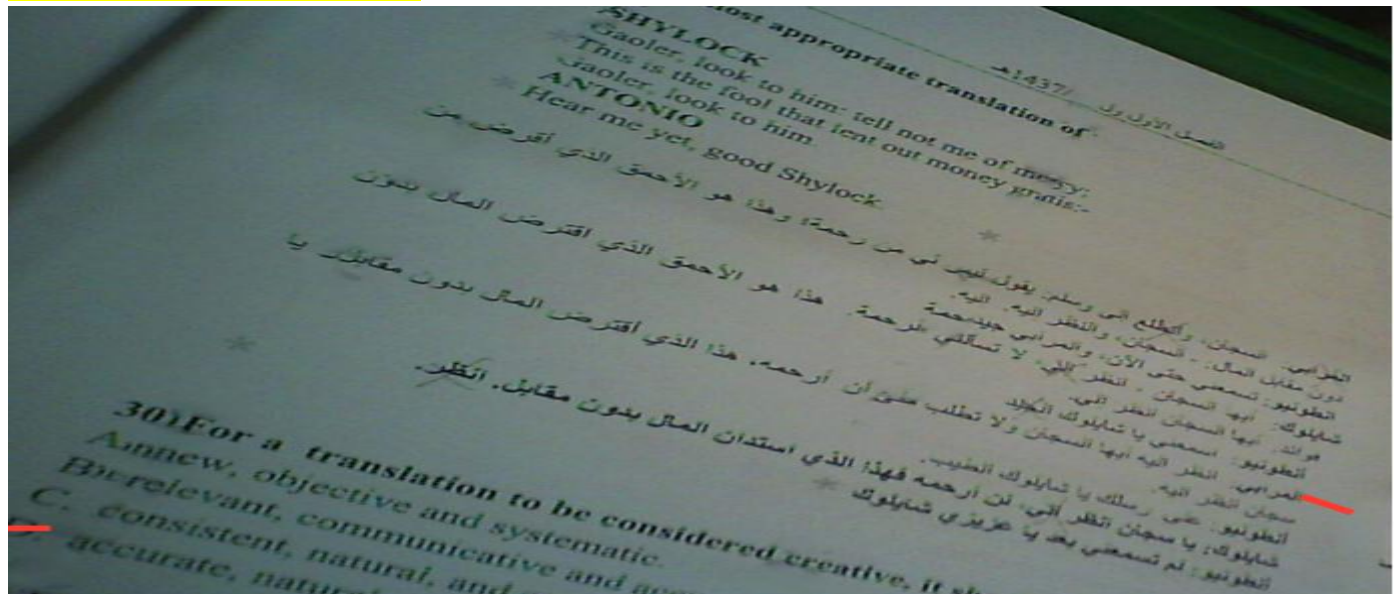 الفصل الأول 1437هـ
most appropriate translation of
SHYLOCK
Gaoler, look to him: tell not me of mercy;
This is the fool that lent out money gratis:-
Gaoler, look to him
ANTONIO
Hear me yet, good Shylock
المرابي: السجان، وأتطلع إلى وسلم: يقول ليس لي من رحمة؛ وهذا هو الأحمق الذي أقرض من
دون مقابل المال. السجان، والنظر إليه. إليه.
انطونيو: تسمعني حتى الآن، والمرابي جيد
شايلوك: أيها السجان. انظر إلي، لا تسألني الرحمة. هذا هو الأحمق الذي اقترض المال بدون
فوائد. أيها السجان انظر إلي.
أنطونيو: اسمعني يا شايلوك
المرابي: انظر إليه أيها السجان ولا تطلب مني أن أرحمه، هذا الذي أقترض المال بدون مقابل، يا
سجان انظر إليه.
أنطونيو: على رسلك يا شايلوك الطيب.
شايلوك: يا سجان انظر إلي، لن أرحمه فهذا الذي استدان المال بدون مقابل. انظر.
أنطونيو: لم تسمعني بعد يا عزيزي شايلوك
30) For a translation to be considered creative, it
A. new, objective and systematic.
B. relevant, communicative and
C. consistent, natural, and
D. accurate,